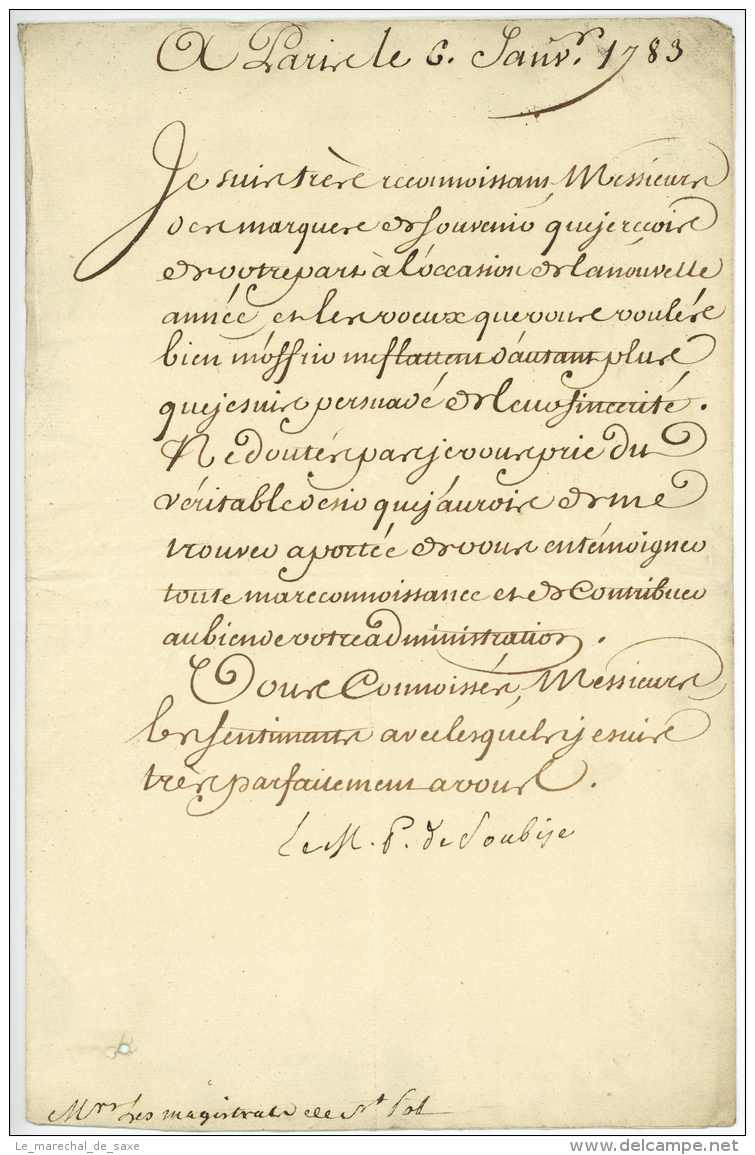 A Paris le 6. Janvr. 1783
Je suis très reconnoissant, Messieurs
des marques de souvenir, que je reçois
de votre part à l'occasion de la nouvelle
année, et les voeux que vous voulés
bien m'offrir me flattent d'autant plus
que je suis persuadé de leur sincerité.
Ne doutés pas je vous prie du
véritable desir que j'aurois de me
trouver a portée de vous en témoigner
toute ma reconnoissance et de Contribuer
au bien de votre administration.
Vous Connoissés, Messieurs
les sentiments avec lesquels je suis
très parfaitement a vous.
Le M. P. de Soubise
Mrs Les magistrats de St Pol
Le_marechal_de_saxe
www.delcampe.net